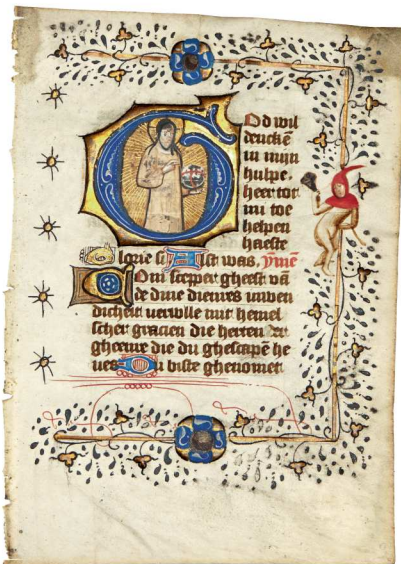 GOd wil
dencken̄
in mijn
hulpe.
heer tot
mi toe
helpen
haeste
Glorie si Alst was. ymnē
Com scepper gheest vā
de dine dienres inwen
dichen vervolle mit hemel
scher gracien die herten der
gheenre die du ghescapē he
ves Du biste ghenomet